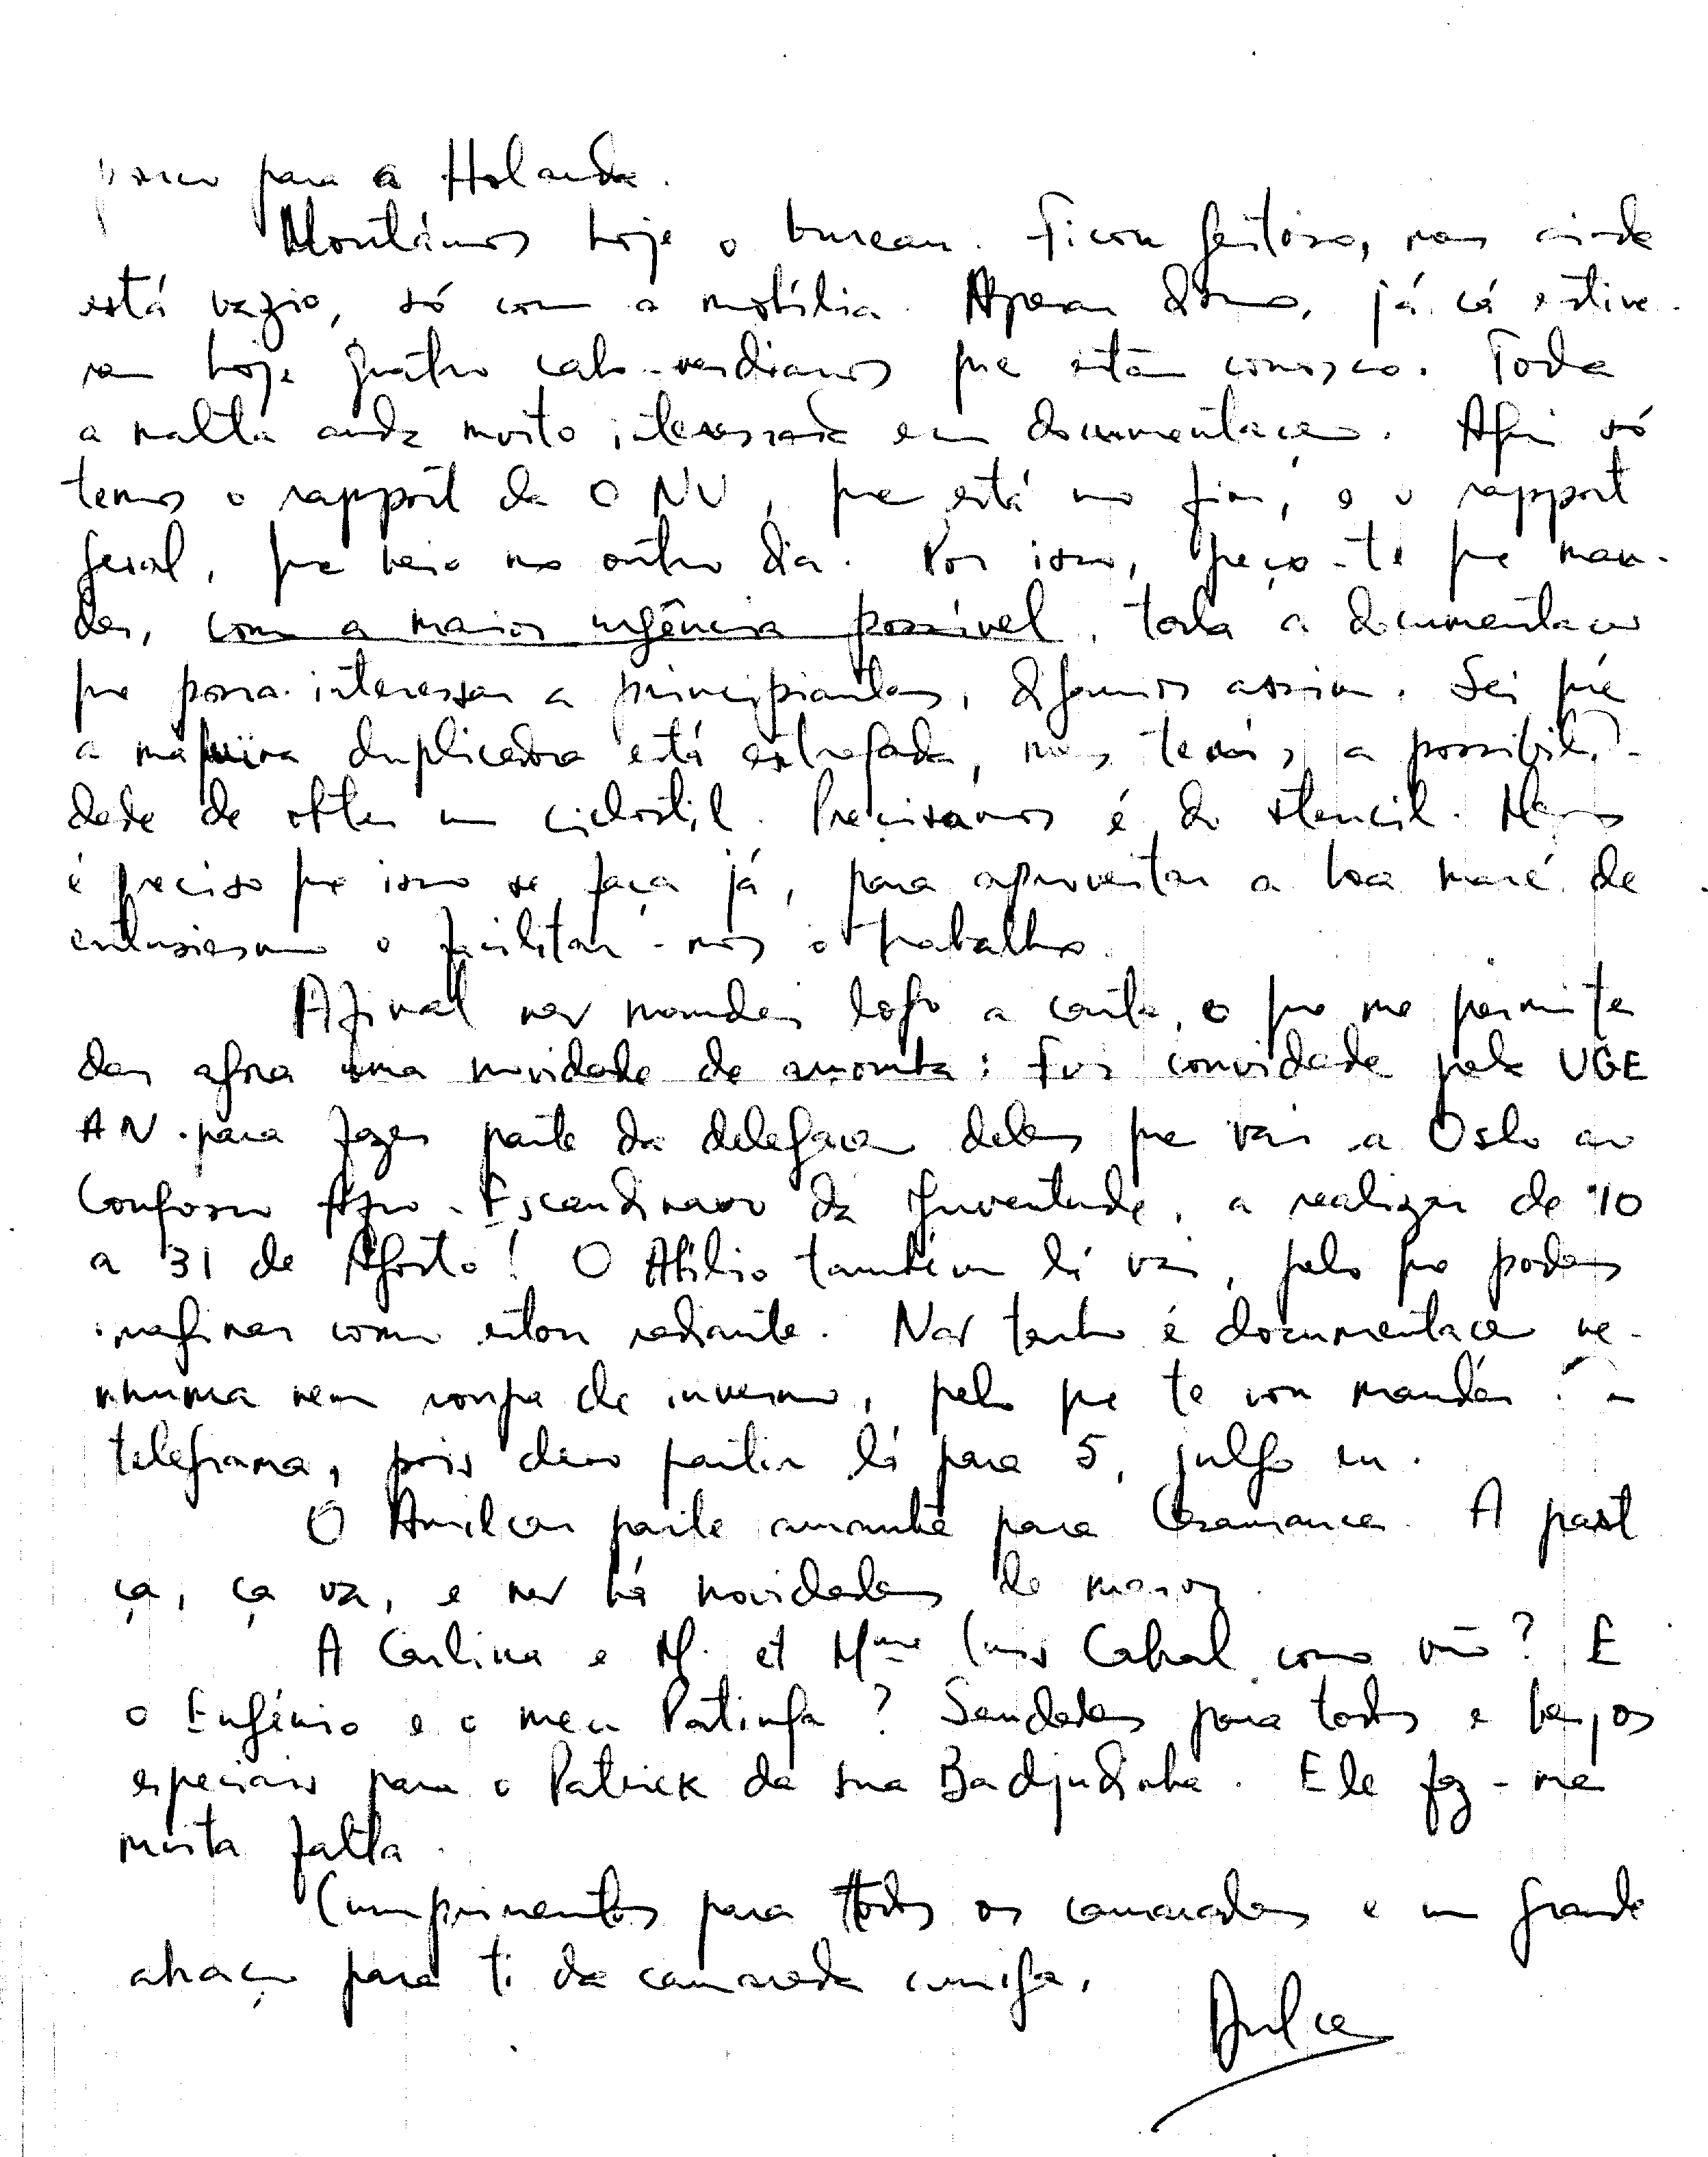 para a Holanda.
Montámos hoje o bureau. Ficou jeitoso, mas ainda
está vazio, só com a mobília. Apesar disso, já cá estive-
ram hoje quatro cabo-verdianos que estão conosco. Toda
a malta anda muito interessada em documentação. Aqui só
temos o rapport da ONU, que está no fim, e o rapport
geral, que veio no outro dia. Por isso, peço-te que man-
des, com a maior urgência possível, toda a documentação
que possa interessar a principiantes, digamos assim. Sei que
a máquina duplicadora está estragada, mas tens a possibili-
dade de obter um ciclostil. Precisamos é do stencil. Mas
é preciso que isso se faça já, para aproveitar a boa maré de
entusiasmo e facilitar-nos o trabalho.
Afinal não mandei logo a carta, o que me permite
dar agora uma novidade de arromba: Fui convidada pela UGE
AN para fazer parte da delegação deles que vai a Oslo ao
Congresso Afro-Escandinavo da Juventude, a realizar de 10
a 31 de Agosto! O Abílio também lá vai, pelo que podes
imaginar como estou radiante. Não tenho é documentação ne-
nhuma nem roupa de inverno, pelo que te vou mandar um
telegrama, pois devo partir lá para 5, julgo eu.
O Amílcar parte amanhã para Casamance. A part
ça, ça va, e não há novidades de maior.
A Carlina e M. et Mme Luís Cabral como vão? E
o Eugénio e o meu Patinga? Saudades para todos e beijos
especiais para o Patrick da sua Badjudinha. Ele faz-me
muita falta.
Cumprimentos para todos os camaradas e um grande
abraço para ti da camarada amiga,
Dulce